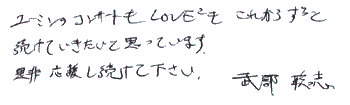 ユーミンのコンサートも LOVE²も これからずっと
続けていきたいと思っています.
是非 応援し続けて下さい. 武部聡志